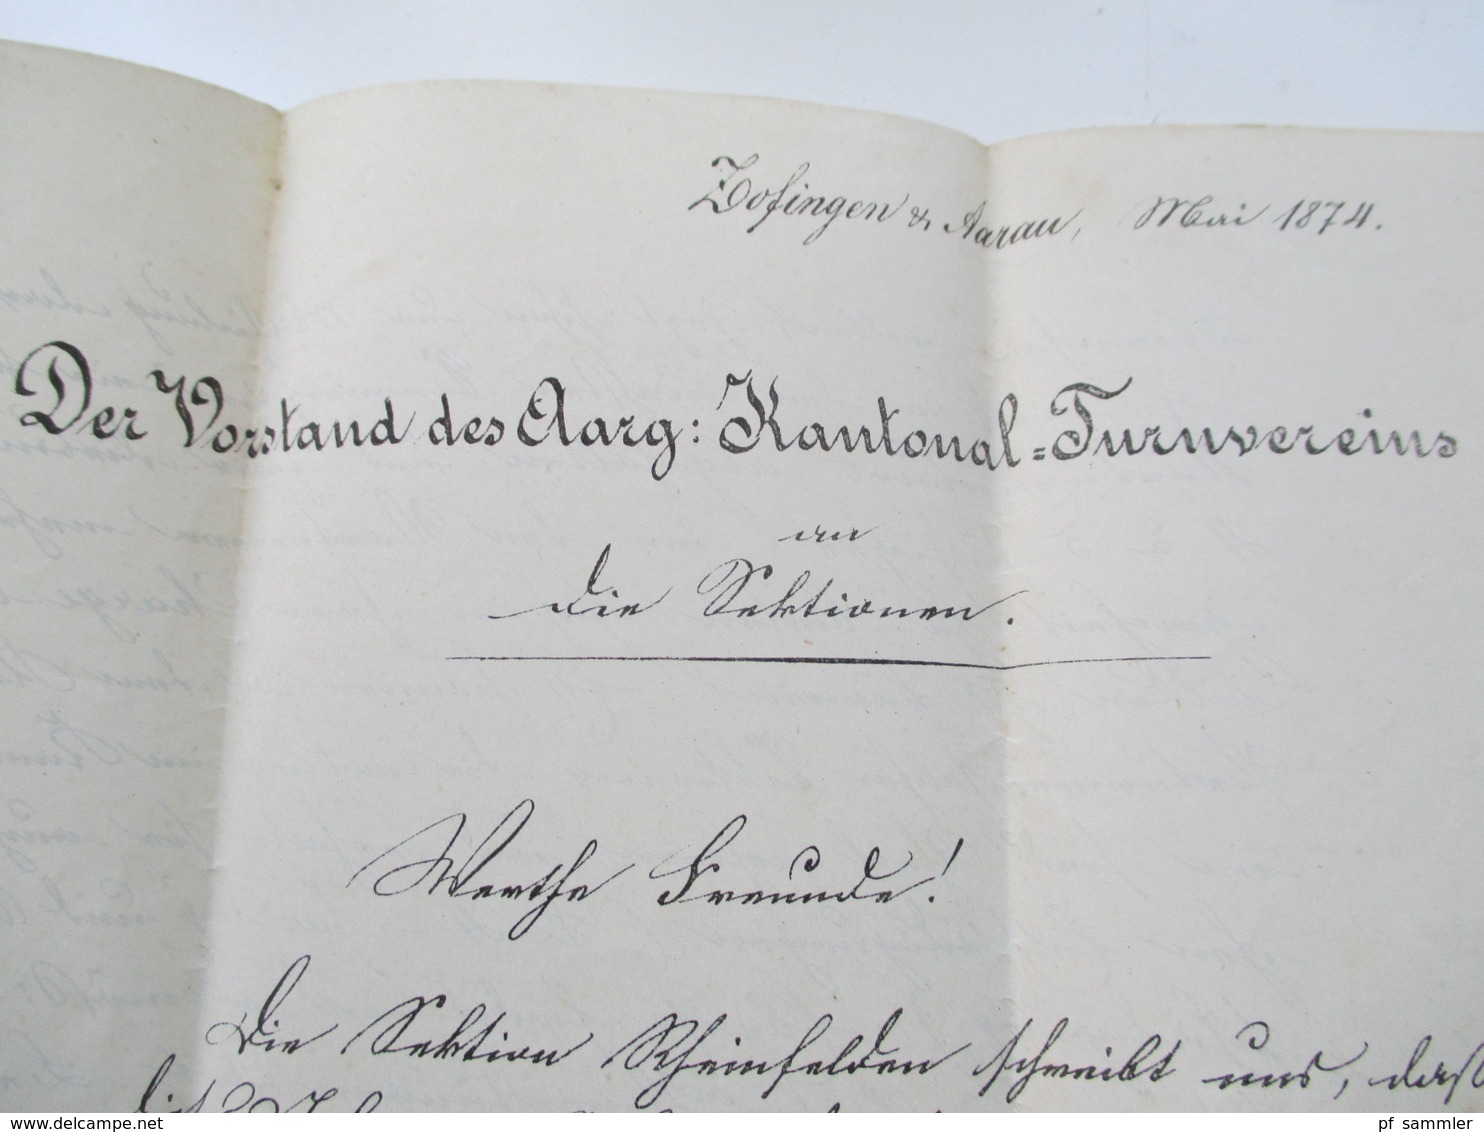 Zofingen & Aarau, Mai 1874.
Der Vorstand des Aarg: Kantonal=Turnvereins
an
die Sektionen.
Werthe Freunde!
Die Sektion Rheinfelden schreibt uns, daß
delcampe.net
pf_sammler